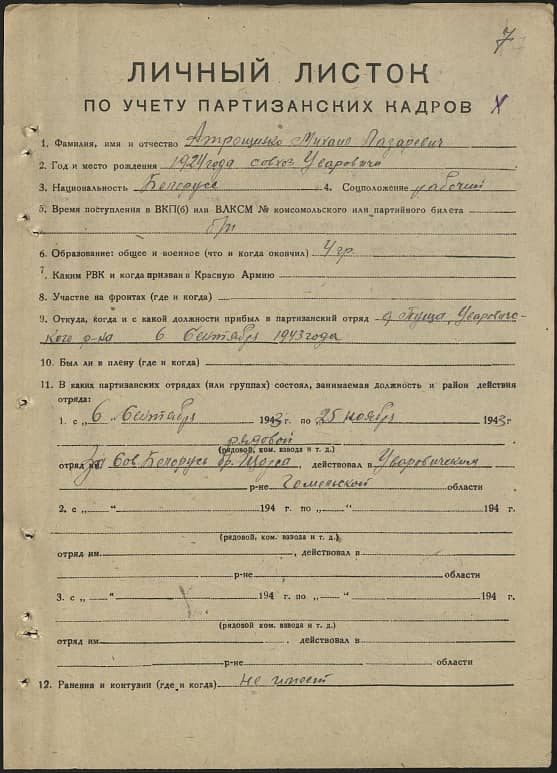 7
ЛИЧНЫЙ ЛИСТОК
ПО УЧЕТУ ПАРТИЗАНСКИХ КАДРОВ
1. Фамилия, имя и отчество Атрощенко Михаил Лазаревич
2. Год и место рождения 1924 года совхоз Уваровичи
3. Национальность Белорусс 4. Соцположение рабочий
5. Время поступления в ВКП(б) или ВЛКСМ № комсомольского или партийного билета
б/п
6. Образование: общее и военное (что и когда окончил) 4 гр.
7. Каким РВК и когда призван в Красную Армию
8. Участие на фронтах (где и когда)
9. Откуда, когда и с какой должности прибыл в партизанский отряд д. Пуща, Уваровичс-
кого р-на 6 Сентября 1943 года
10. Был ли в плену (где и когда)
11. В каких партизанских отрядах (или группах) состоял, занимаемая должность и район действия
отряда:
1. с „6 Сентября 1943 г. по „25 ноября 1943 г
рядовой
(рядовой, ком. взвода и т. д.)
отряд За Сов. Белорусь бр. Щорса, действовал в Уваровичским
р-не Гомельской области
2. с „ “ 194 г. по „ “ 194 г.
(рядовой, ком. взвода и т. д.)
отряд им. , действовал в
р-не области
3. с „ “ 194 г. по „ “ 194 г.
(рядовой, ком. взвода и т. д.)
отряд им. , действовал в
р-не области
12. Ранения и контузии (где и когда) не имеет